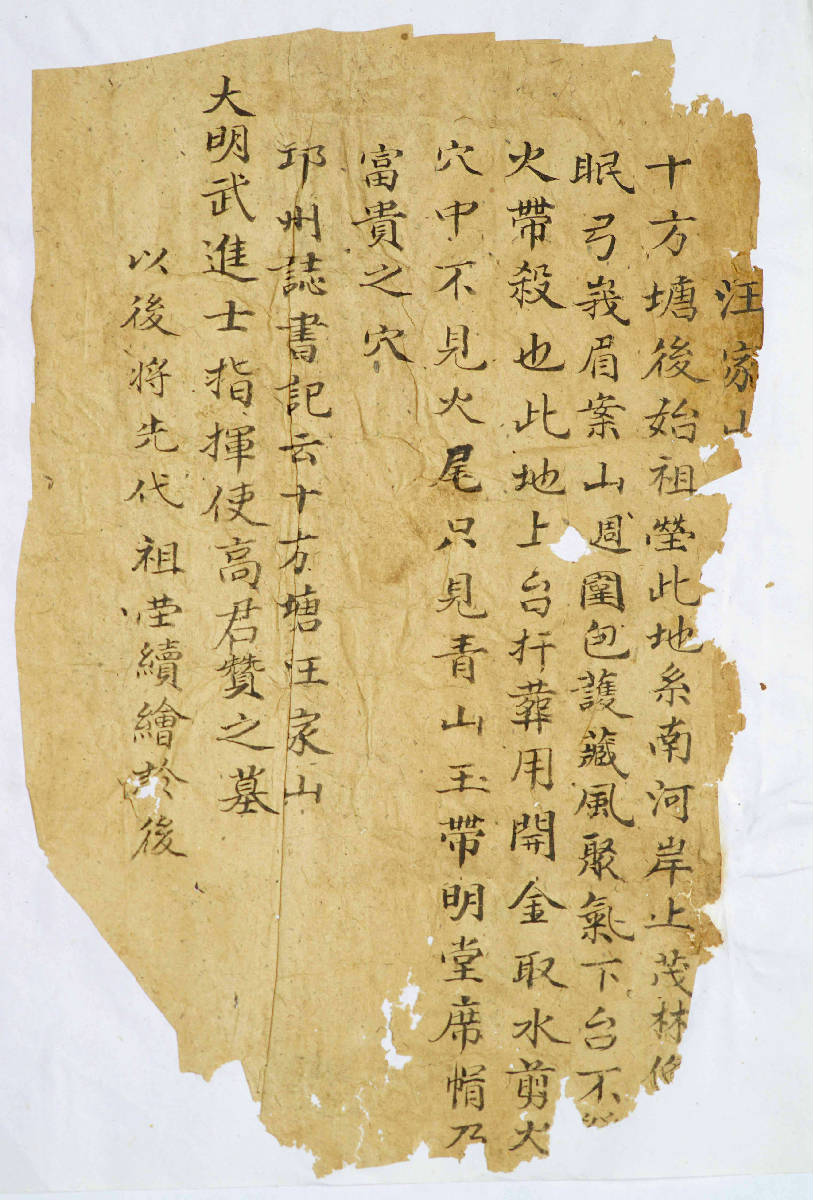 汪家山
十方塘後始祖塋此地系南河岸上茂林
眠弓峩眉案山週圍包護藏風聚氣下台不
火帶殺也此地上台扦葬用開金取水剪火
穴中不見火尾只見青山玉帶明堂席帽乃
富貴之穴
邛州誌書記云十方塘汪家山
大明武進士指揮使高君贊之墓
以後将先代祖塋續繪於後